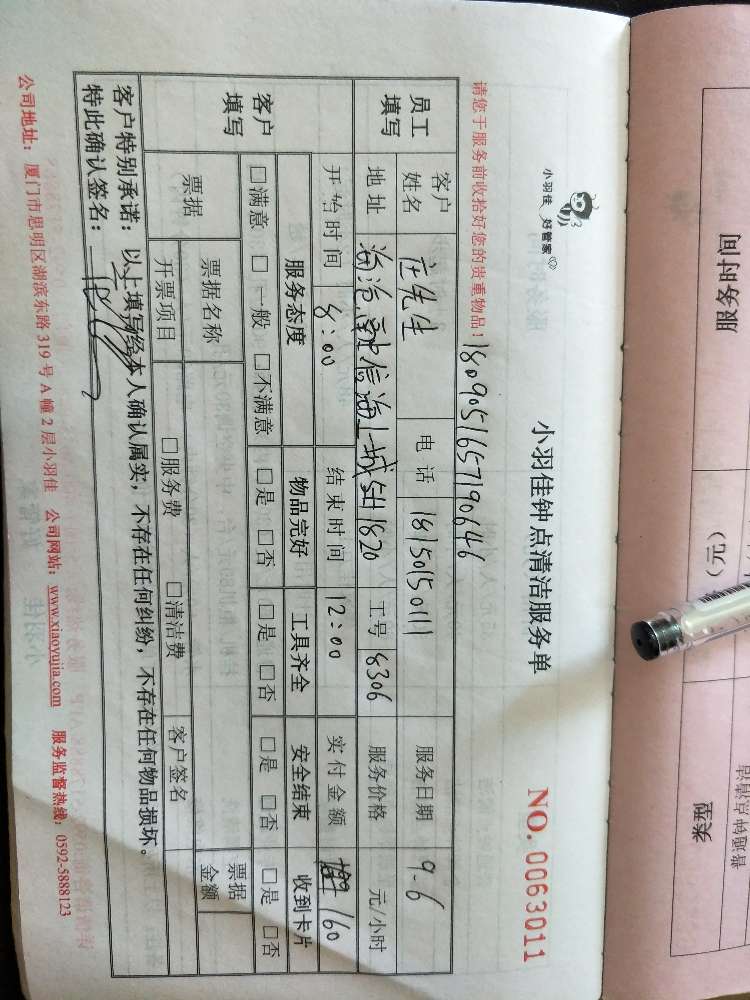 小羽佳 好管家
小羽佳钟点清洁服务单
NO. 0063011
请您于服务前收拾好您的贵重物品！1809051657190646
员工填写
客户姓名 庄先生 电话 18150150111 服务日期 9-6
地址 海沧,融信海上城5#1820 工号 8306 服务价格 元/小时
开始时间 8:00 结束时间 12:00 实付金额 160
客户填写
服务态度 物品完好 工具齐全 安全结束 收到卡片
□满意 □一般 □不满意 □是 □否 □是 □否 □是 □否 □是 □否
票据 票据名称 票据金额
开票项目 □服务费 □清洁费 客户签名
客户特别承诺：以上填写经本人确认属实，不存在任何纠纷，不存在任何物品损坏。
特此确认签名：
公司地址：厦门市思明区湖滨东路 319 号 A 幢 2 层小羽佳 公司网站：www.xiaoyujia.com 服务监督热线：0592-5888123
服务时间
（元）
类型